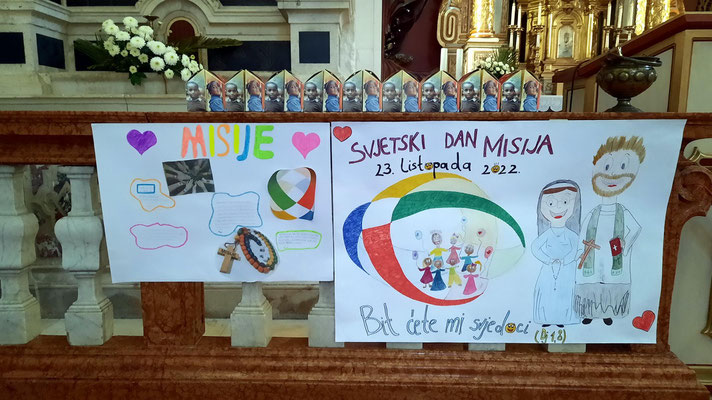 MISIJE
SVJETSKI DAN MISIJA
23. listopada 2022.
Bit ćete mi svjedoci
(Dj 1,8)